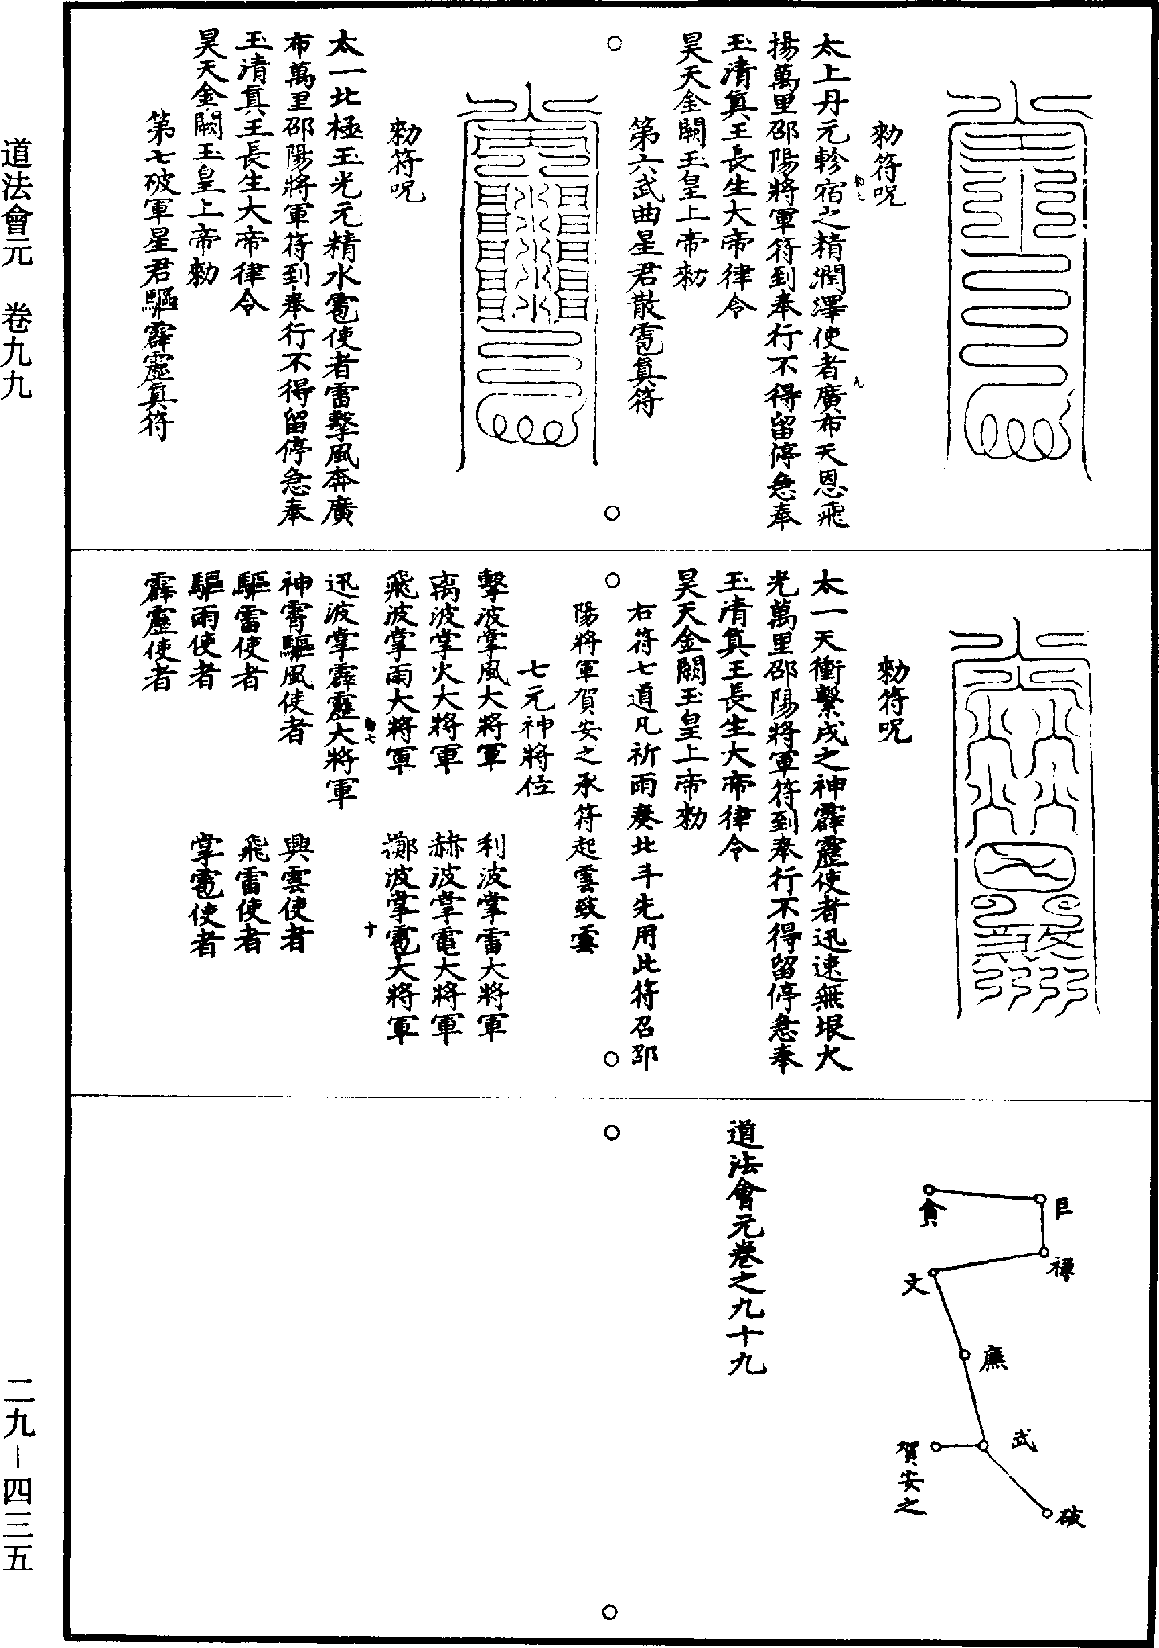 道法會元　卷九九
二九－四三五
勑符呪
太上丹元軫宿之精潤澤使者廣布天恩飛
揚萬里邵陽將軍符到奉行不得留停急奉
玉清真王長生大帝律令
昊天金闕玉皇上帝勑
第六武曲星君散雹真符
勑符呪
太一北極玉光元精水雹使者雷擊風奔廣
布萬里邵陽將軍符到奉行不得留停急奉
玉清真王長生大帝律令
昊天金闕玉皇上帝勑
第七破軍星君驅霹靂真符
勑符呪
太一天衝繫戌之神霹靂使者迅速無垠火
光萬里邵陽將軍符到奉行不得留停急奉
玉清真王長生大帝律令
昊天金闕玉皇上帝勑
右符七道凡祈雨奏北斗先用此符召邵
陽將軍賀安之承符起雲致雲
七元神將位
擊波掌風大將軍　利波掌雷大將軍
离波掌火大將軍　赫波掌電大將軍
飛波掌雨大將軍　擲波掌雹大將軍
迅波掌霹靂大將軍
神霄驅風使者　興雲使者
驅雷使者　飛雷使者
驅雨使者　掌雹使者
霹靂使者
十
巨
貪
祿
文
廉
武
賀安之
破
道法會元卷之九十九